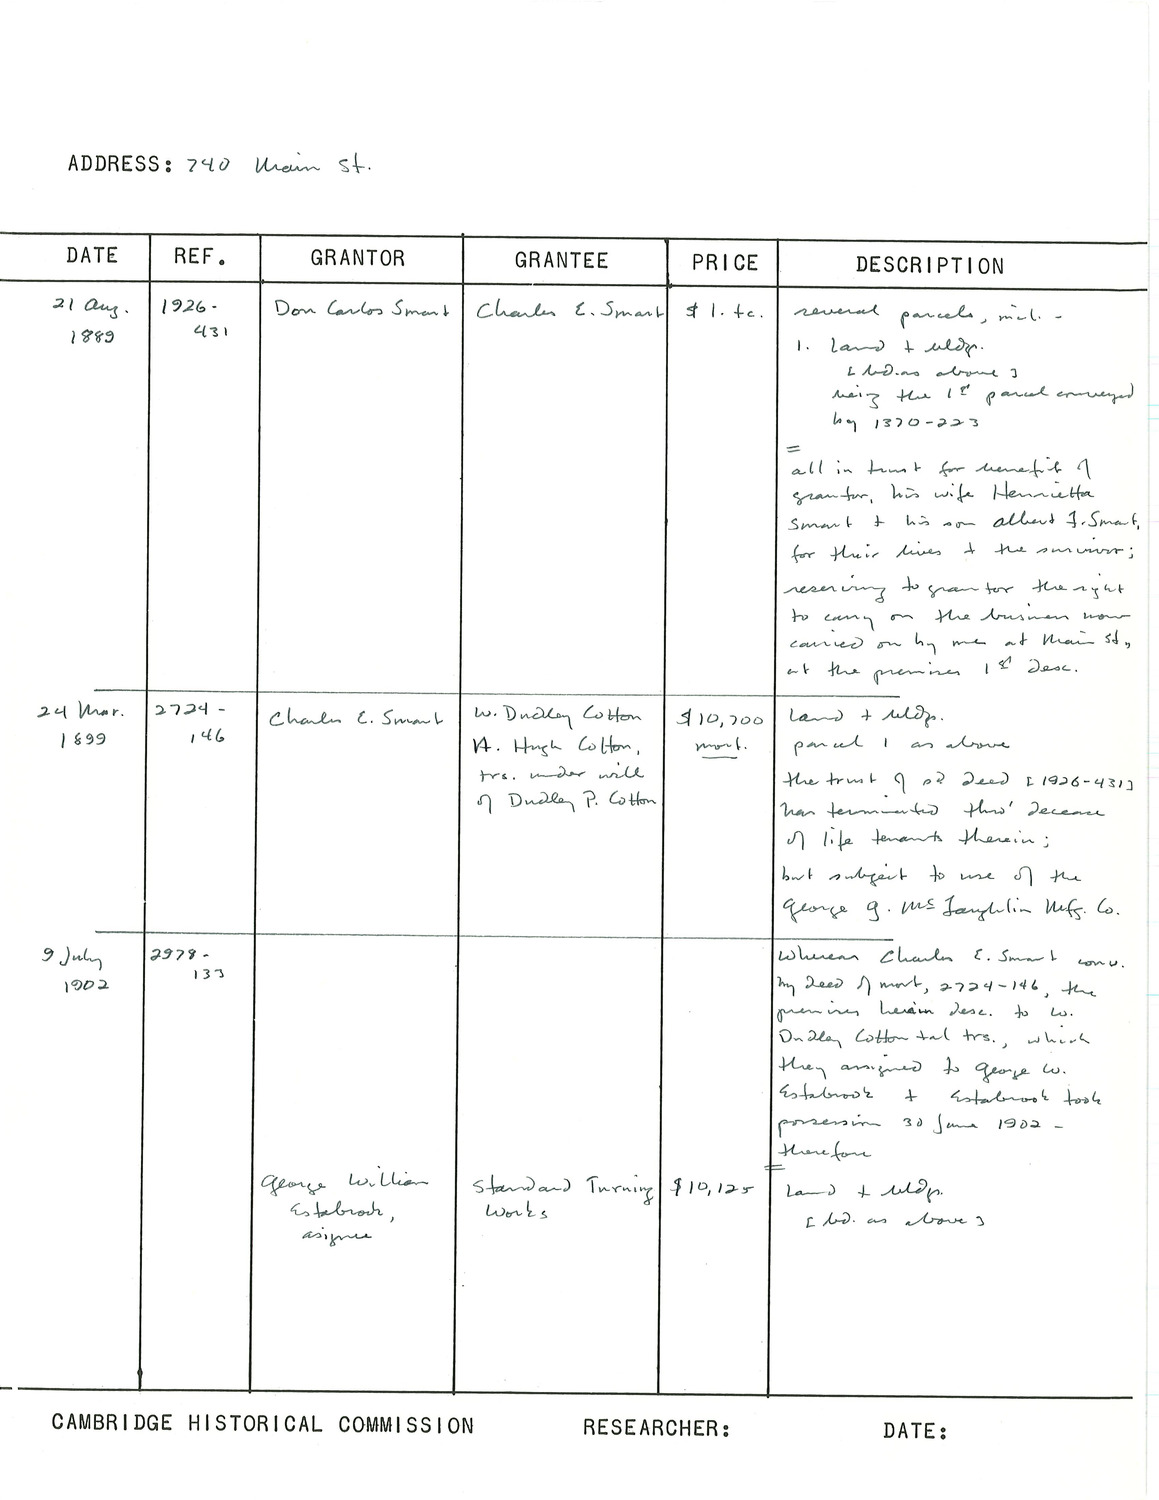 ADDRESS: 740 Main St.
DATE REF. GRANTOR GRANTEE PRICE DESCRIPTION
21 Aug. 1889
1926-431
Don Carlos Smart
Charles E. Smart
$1. tc.
several parcels, incl. -
1. Land + bldgs.
[bd. as above]
being the 1st parcel conveyed
by 1370-223
=
all in trust for benefit of
grantor, his wife Henrietta
Smart + his son Albert F. Smart,
for their lives + the survivor;
reserving to grantor the right
to carry on the business now
carried on by me at Main St,
at the premises 1st desc.
24 Mar.
1899
2724-
146
Charles E. Smart
W. Dudley Cotton
A. Hugh Cotton,
trs. under will
of Dudley P. Cotton
$10,700
mort.
Land + bldgs.
parcel 1 as above
the trust of sd deed [1926-431]
has terminated thro' decease
of life tenants therein;
but subject to use of the
George G. McLaughlin Mfg. Co.
9 July
1902
2978-
133
Whereas Charles E. Smart conv.
by deed of mort, 2724-146, the
premises herein desc. to W.
Dudley Cotton tal trs., which
they assigned to George W.
Estabrook + Estabrook took
possession 30 June 1902 -
therefore
=
George William
Estabrook,
assignee
Standard Turning
Works
$10,125
Land + bldgs.
[bd. as above]
CAMBRIDGE HISTORICAL COMMISSION RESEARCHER: DATE: